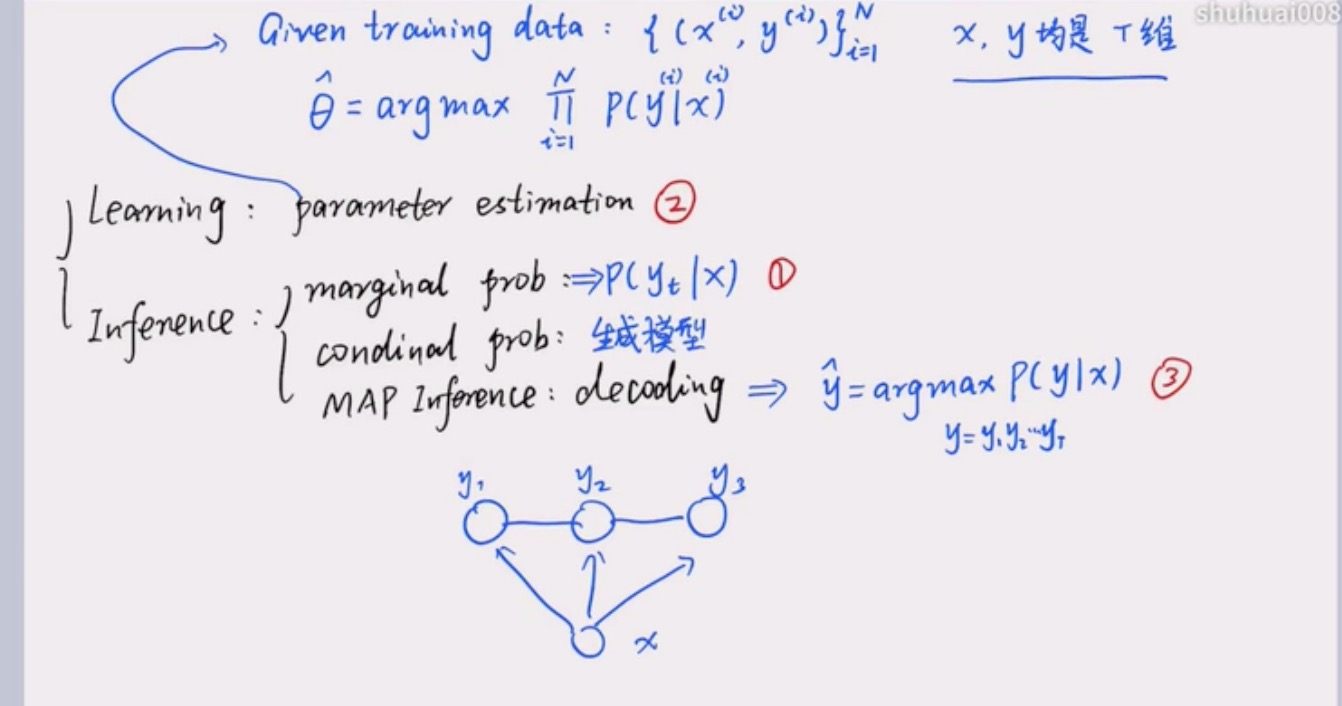 shuhuai008
Given training data : {(x^{(i)}, y^{(i)})}_{i=1}^{N} x, y 均是 T 维
θ̂ = argmax ∏_{i=1}^{N} P(y^{(i)}|x^{(i)})
Learning : parameter estimation ②
Inference : marginal prob : ⇒ P(y_t|x) ①
condinal prob : 生成模型
MAP Inference : decoding ⇒ ŷ = argmax P(y|x) ③
y = y_1 y_2 … y_T
y_1 y_2 y_3
x